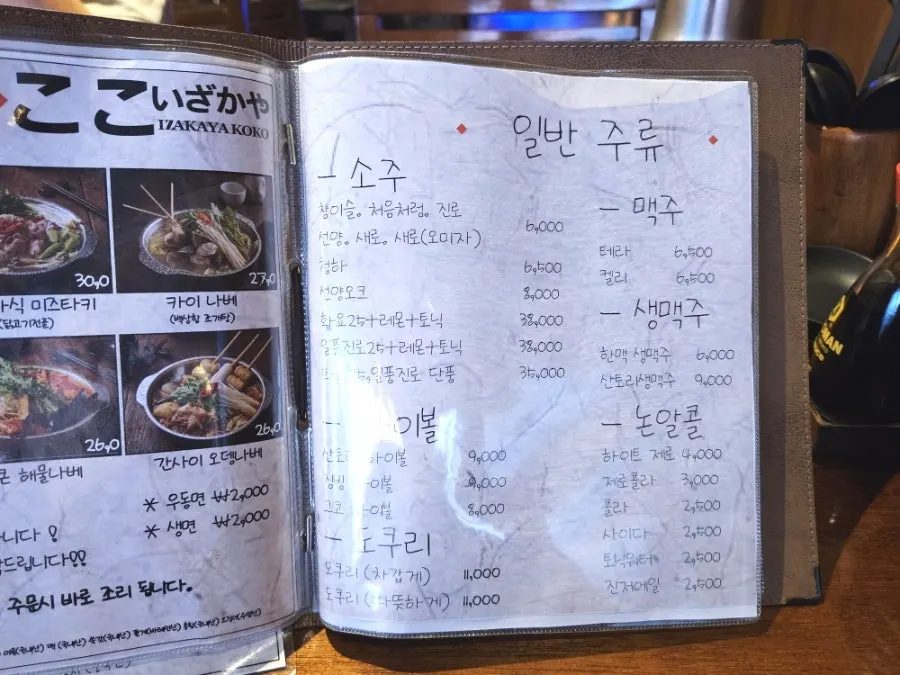 ここいざかや
IZAKAYA KOKO
30,0
27,0
식 미즈타키
카이 나베
(닭고기전골)
(백상합 조개탕)
26,0
26,0
해물나베
간사이 오뎅나베
* 우동면 ₩2,000
* 생면 ₩2,000
니다
드립니다
주문시 바로 조리 됩니다.
일반 주류
- 소주
참이슬, 처음처럼, 진로
선양, 새로, 새로(오미자) 6,000
청하 6,500
선양오크 8,000
화요25+레몬+토닉 38,000
일품진로25+레몬+토닉 38,000
일품진로 단품 35,000
- 이볼
산토리 하이볼 9,000
이볼
이볼 8,000
- 도쿠리
도쿠리 (차갑게) 11,000
도쿠리 (따뜻하게) 11,000
- 맥주
테라 6,500
켈리 6,500
- 생맥주
한맥 생맥주 6,000
산토리생맥주 9,000
- 논알콜
하이트 제로 4,000
제로콜라 3,000
콜라 2,500
사이다 2,500
토닉워터 2,500
진저에일 2,500